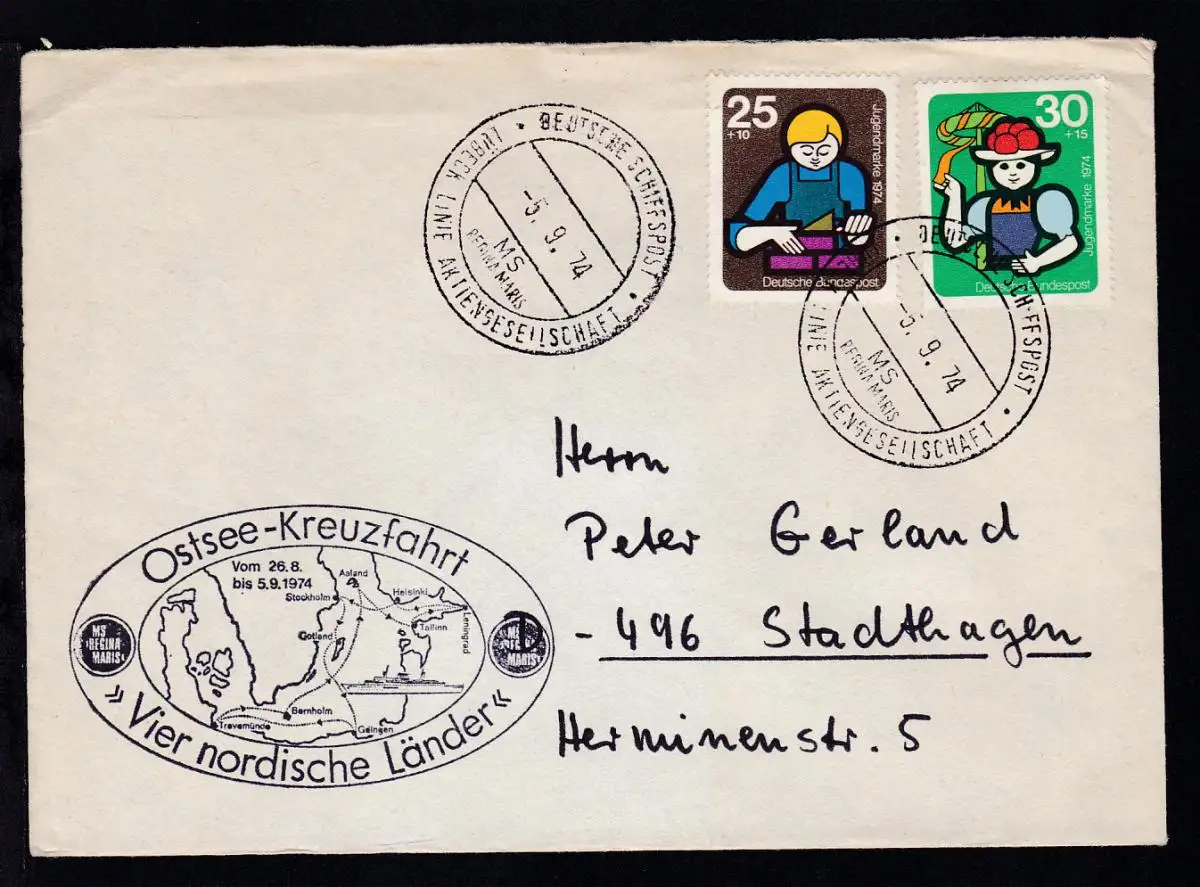 25
+10
Jugendmarke 1974
Deutsche Bundespost
30
+15
Jugendmarke 1974
Deutsche Bundespost
DEUTSCHE SCHIFFSPOST
-5. 9. 74
MS
REGINA MARIS
LÜBECK LINIE AKTIENGESELLSCHAFT
DEUTSCHE SCHIFFSPOST
-5. 9. 74
MS
REGINA MARIS
LINIE AKTIENGESELLSCHAFT
Herrn
Peter Gerland
-496 Stadthagen
Herminenstr. 5
Ostsee-Kreuzfahrt
Vom 26.8.
bis 5.9.1974
Aaland
Stockholm
Helsinki
Tallinn
Leningrad
Gotland
Bornholm
Travemünde
Gdingen
MS
REGINA
MARIS
MS
MARIS
»Vier nordische Länder«